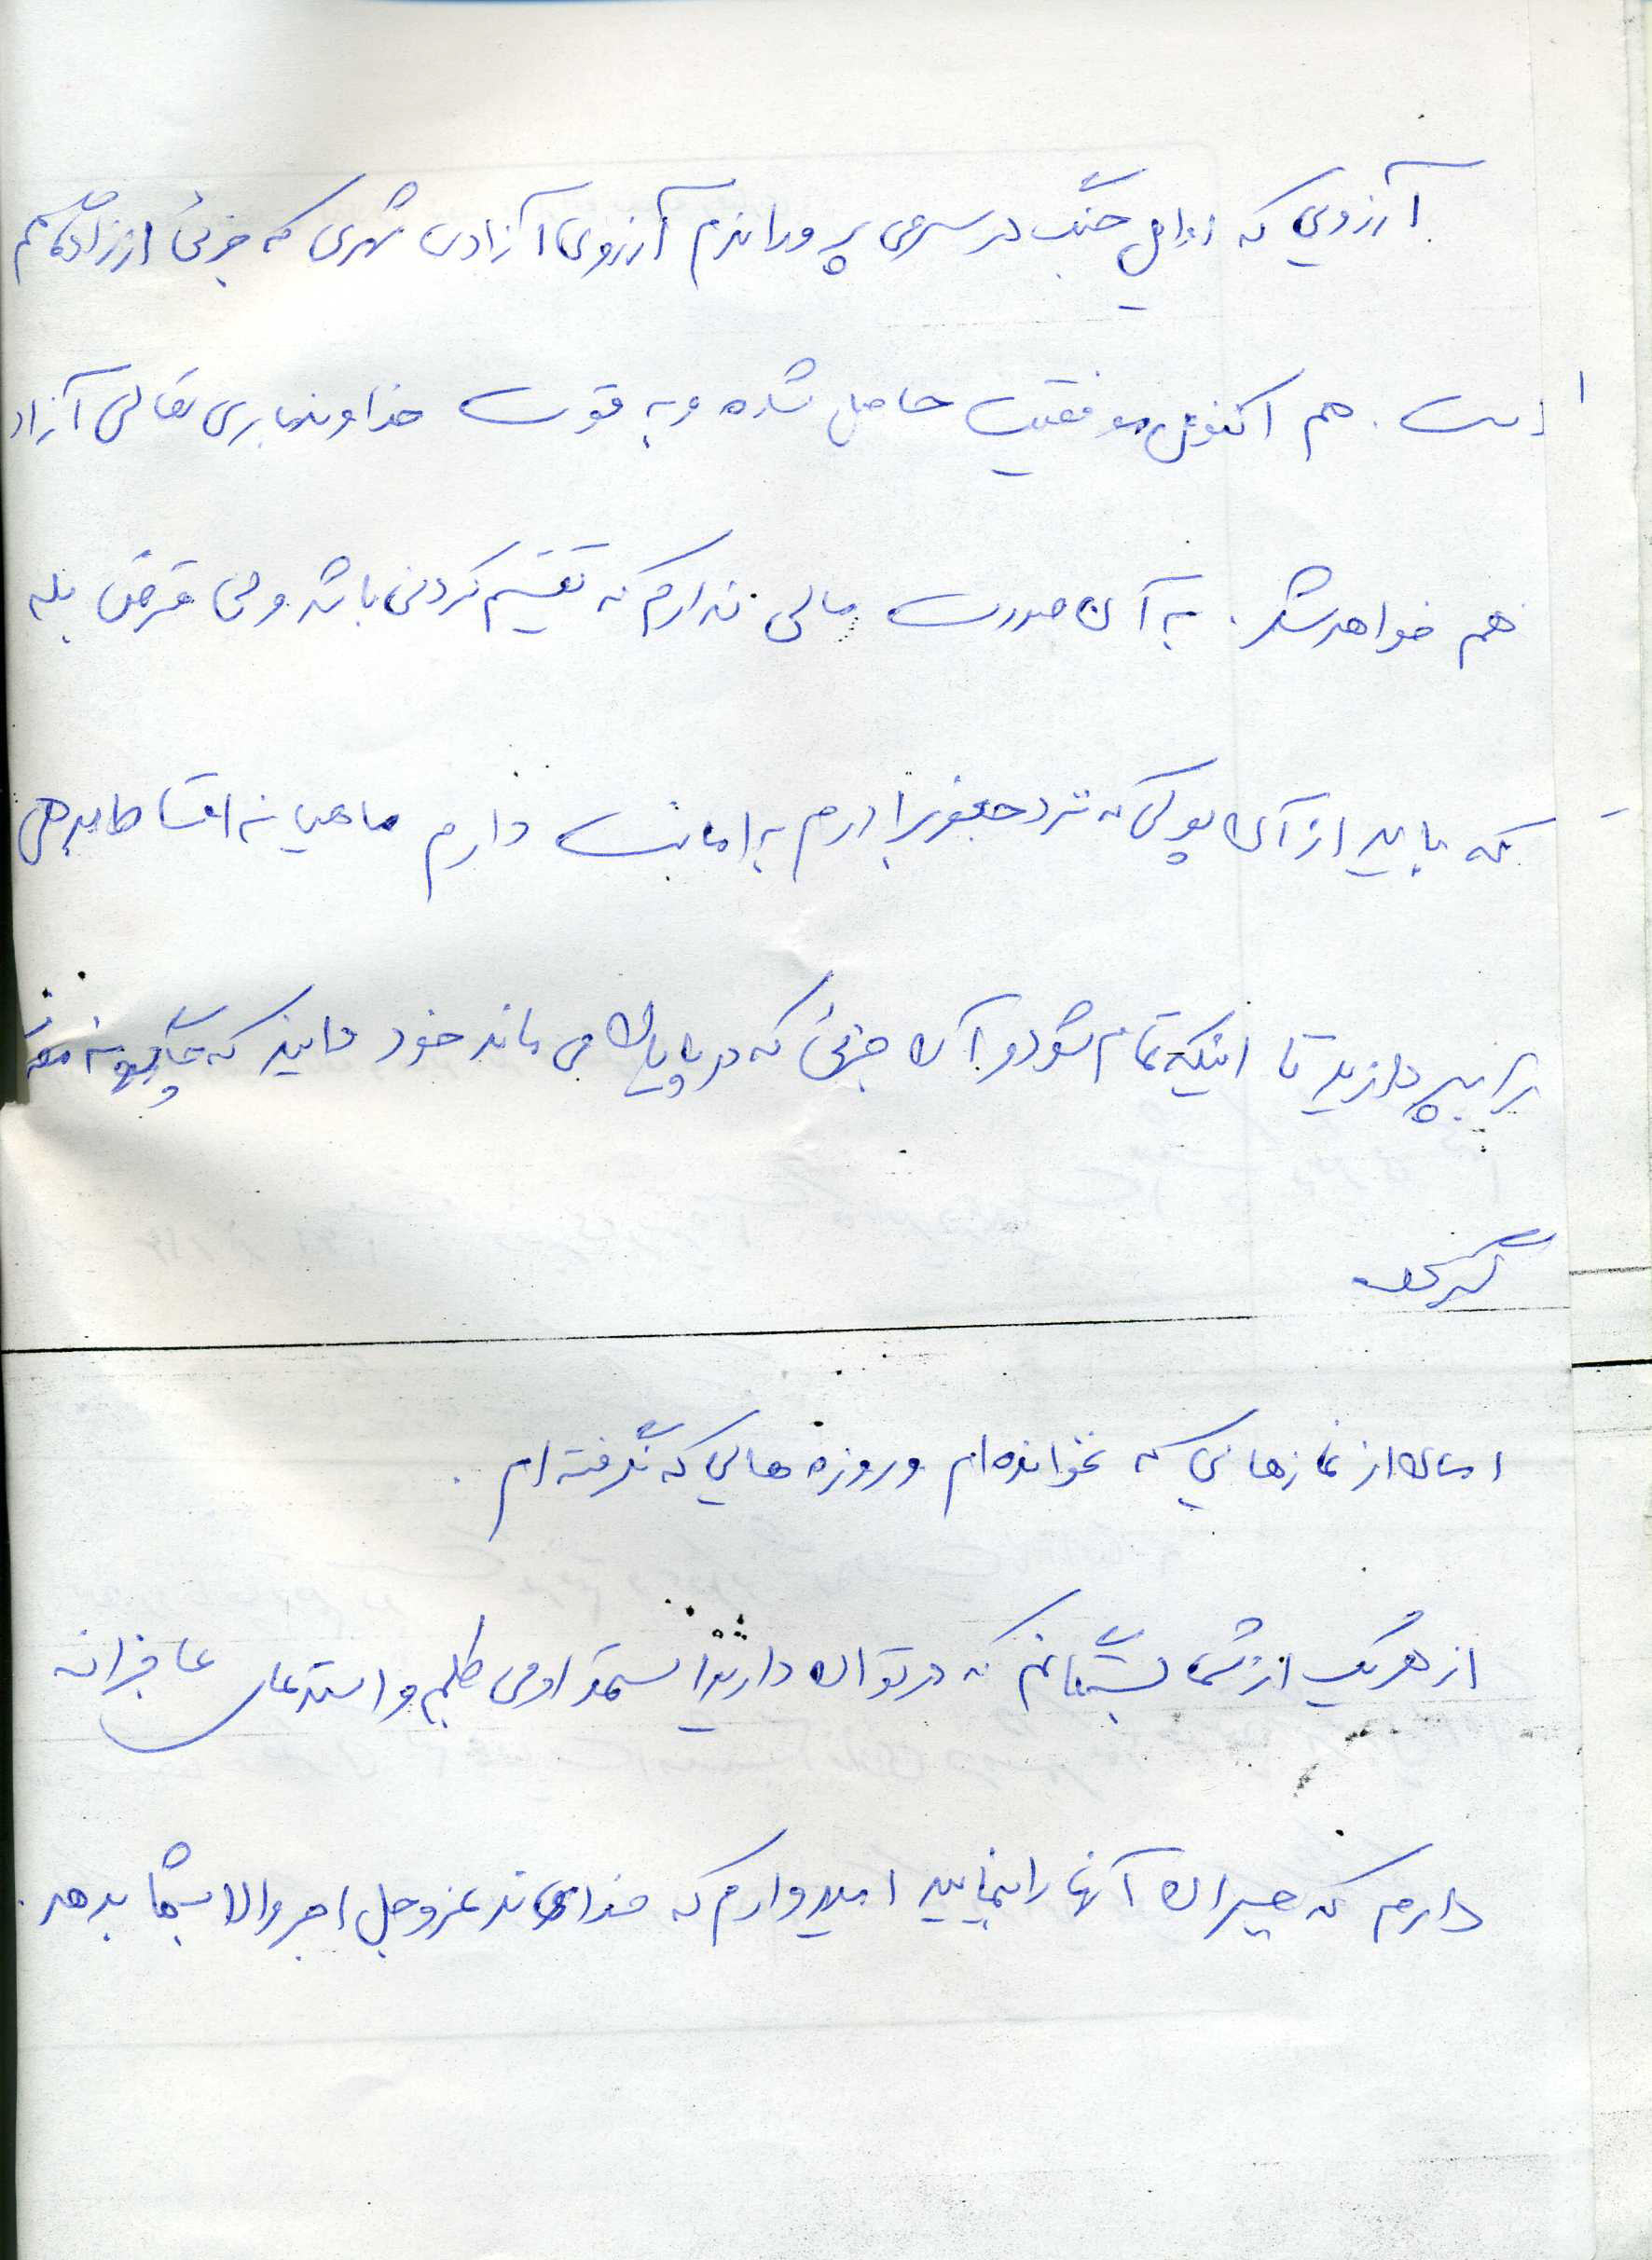 آرزویی که اوایل جنگ در سر می پروراندم آرزوی آزادی شهری که جزئی از زادگاهم
است. هم اکنون موفقیت حاصل شده و به قوت خداوند باری تعالی آزاد
هم خواهد شد. به آن صورت مالی ندارم که تقسیم کردنی باشد ولی قرض بله
که باید از آن پولی که نزد جعفر برادرم به امانت دارم ماهیانه اقساط بدهی
را بپردازید تا اینکه تمام شود و آن جزئی که در پایان می ماند خود دانید که چگونه مصرف
گردد
امسال از نمازهایی که نخوانده ام و روزه هایی که نگرفته ام.
از هر یک از شما بستگانم که در توان دارید استمداد می طلبم و استدعای عاجزانه
دارم که جبران آنها را بنمایید امیدوارم که خداوند عزوجل اجر والا بشما بدهد.